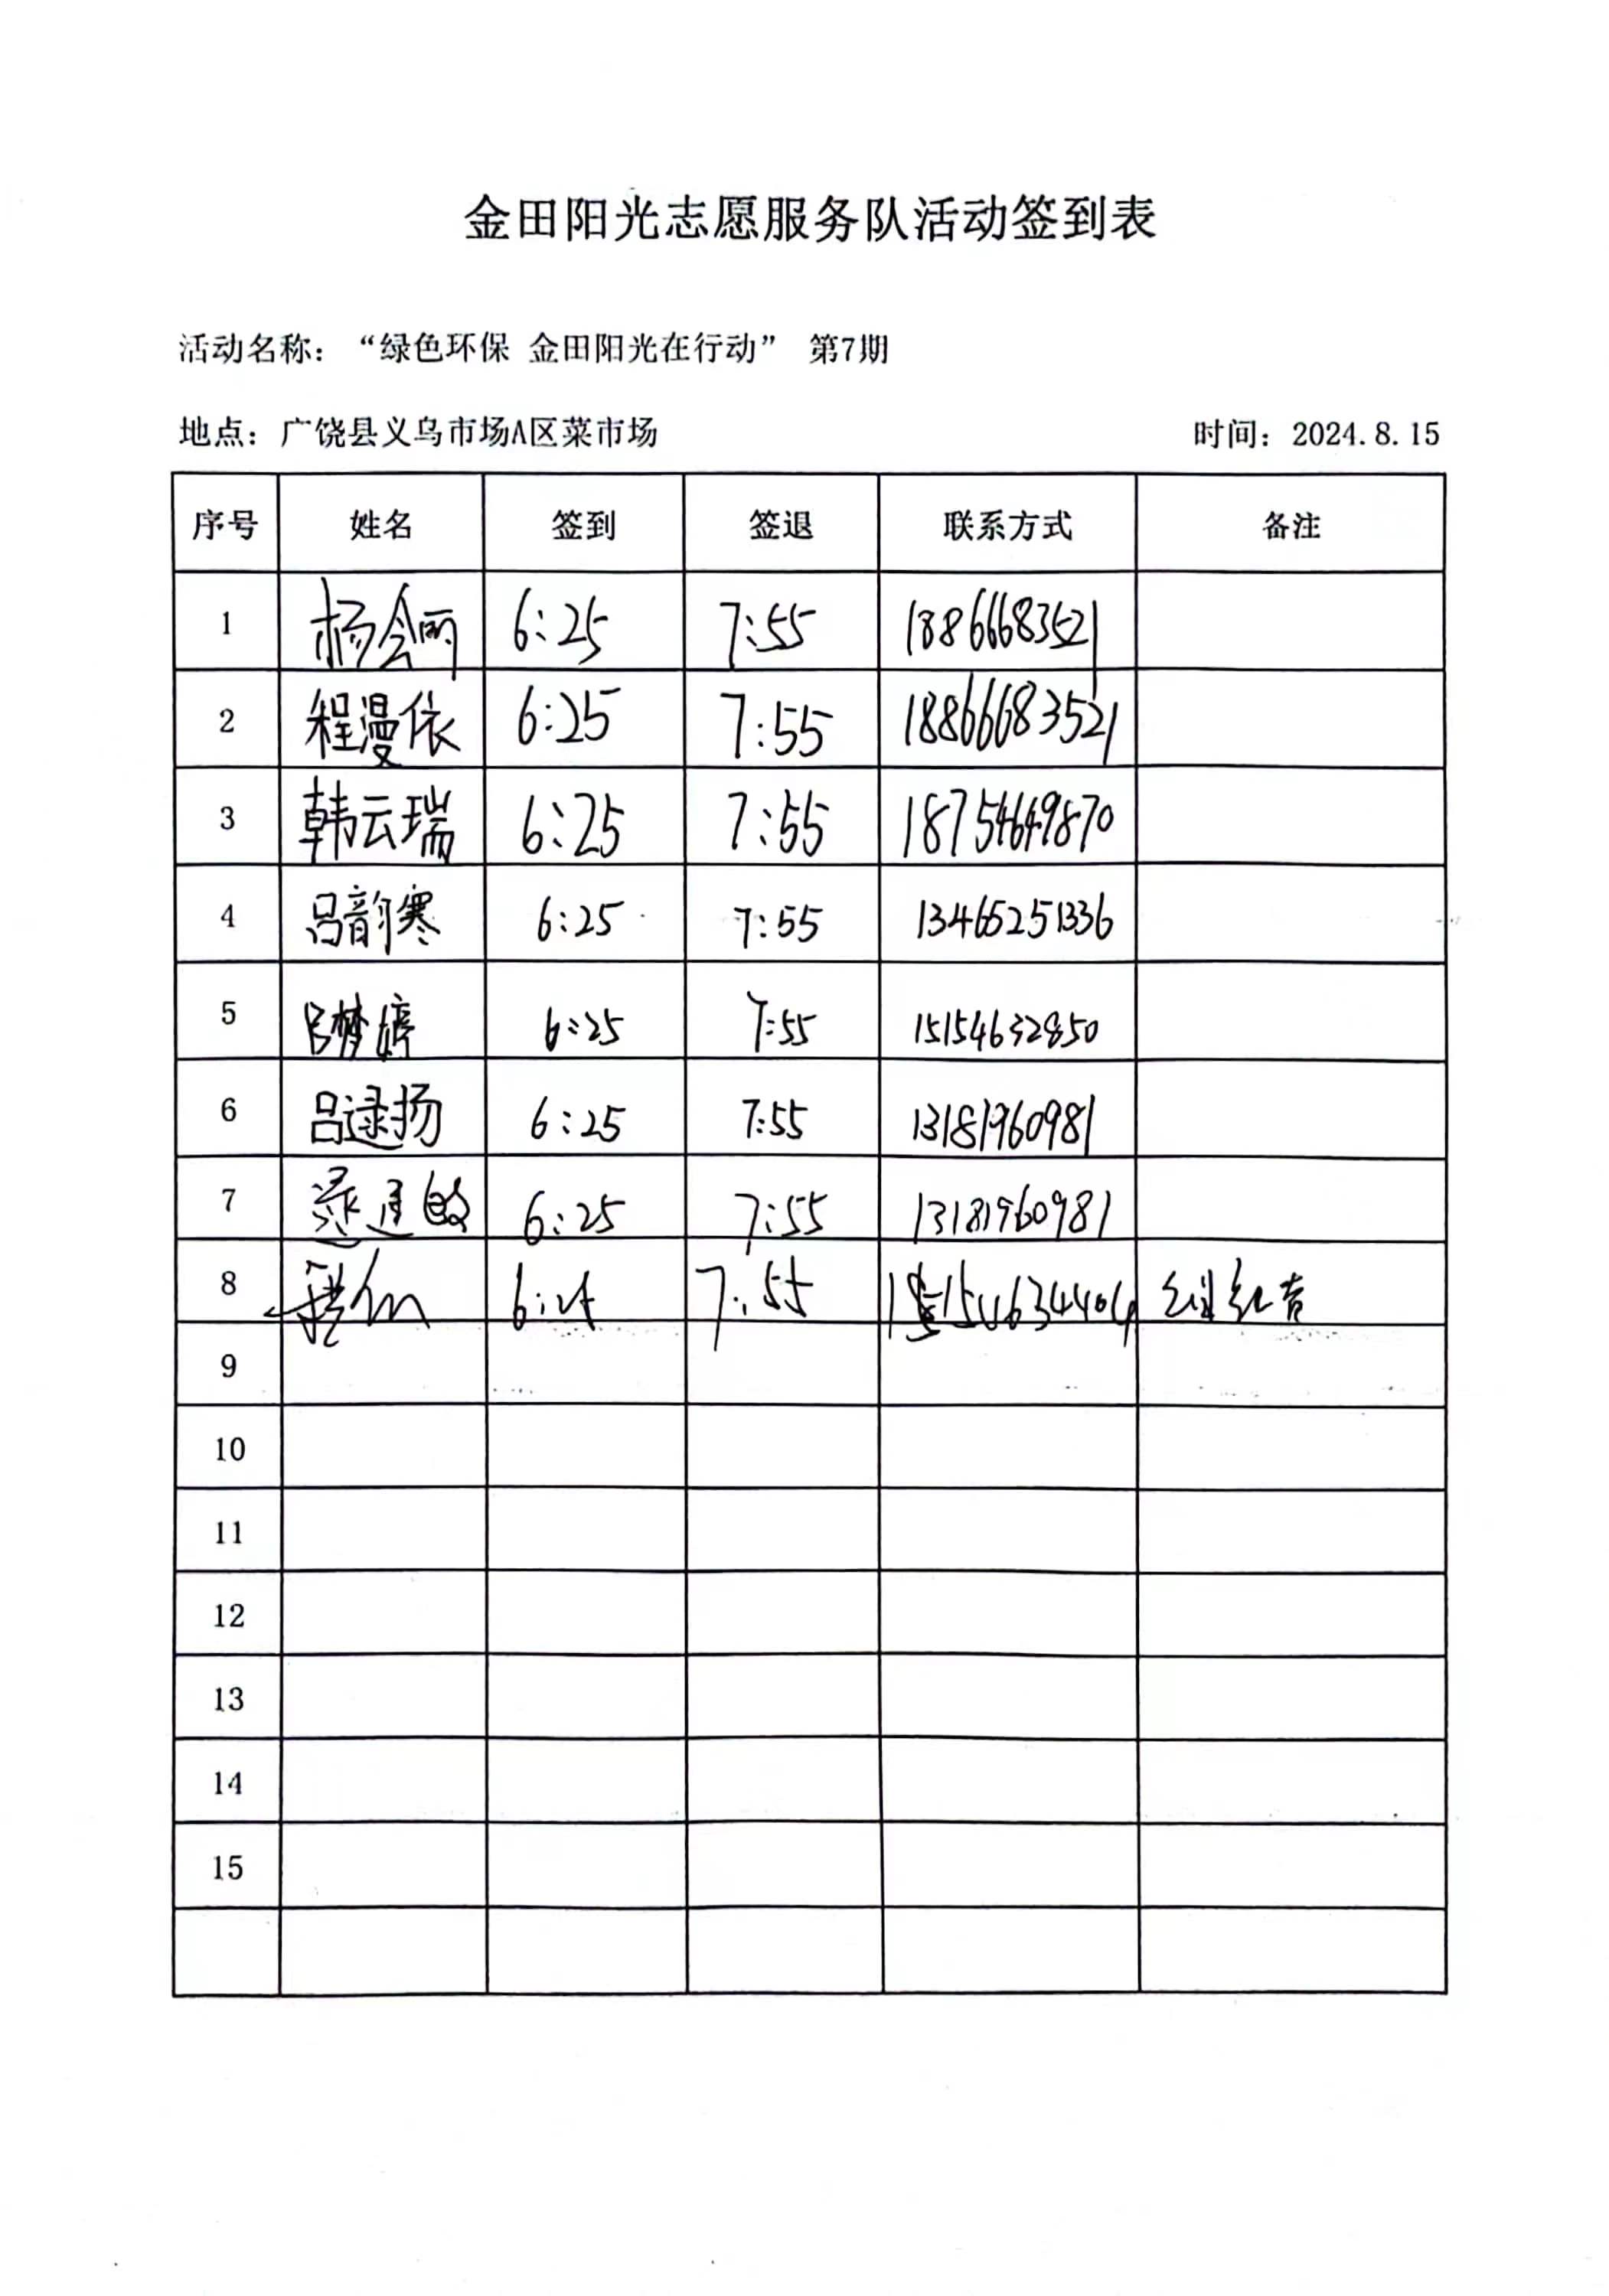 金田阳光志愿服务队活动签到表
活动名称：“绿色环保 金田阳光在行动” 第7期
地点：广饶县义乌市场A区菜市场 时间：2024.8.15
序号 姓名 签到 签退 联系方式 备注
1 杨会丽 6:25 7:55 18866683521
2 程漫依 6:25 7:55 18866683521
3 韩云瑞 6:25 7:55 18754649870
4 吕韵寒 6:25 7:55 13465251336
5 吕梦婷 6:25 7:55 15154632850
6 吕逯扬 6:25 7:55 13181960981
7 逯 6:25 7:55 13181960981
8 6:25 7:55
9
10
11
12
13
14
15